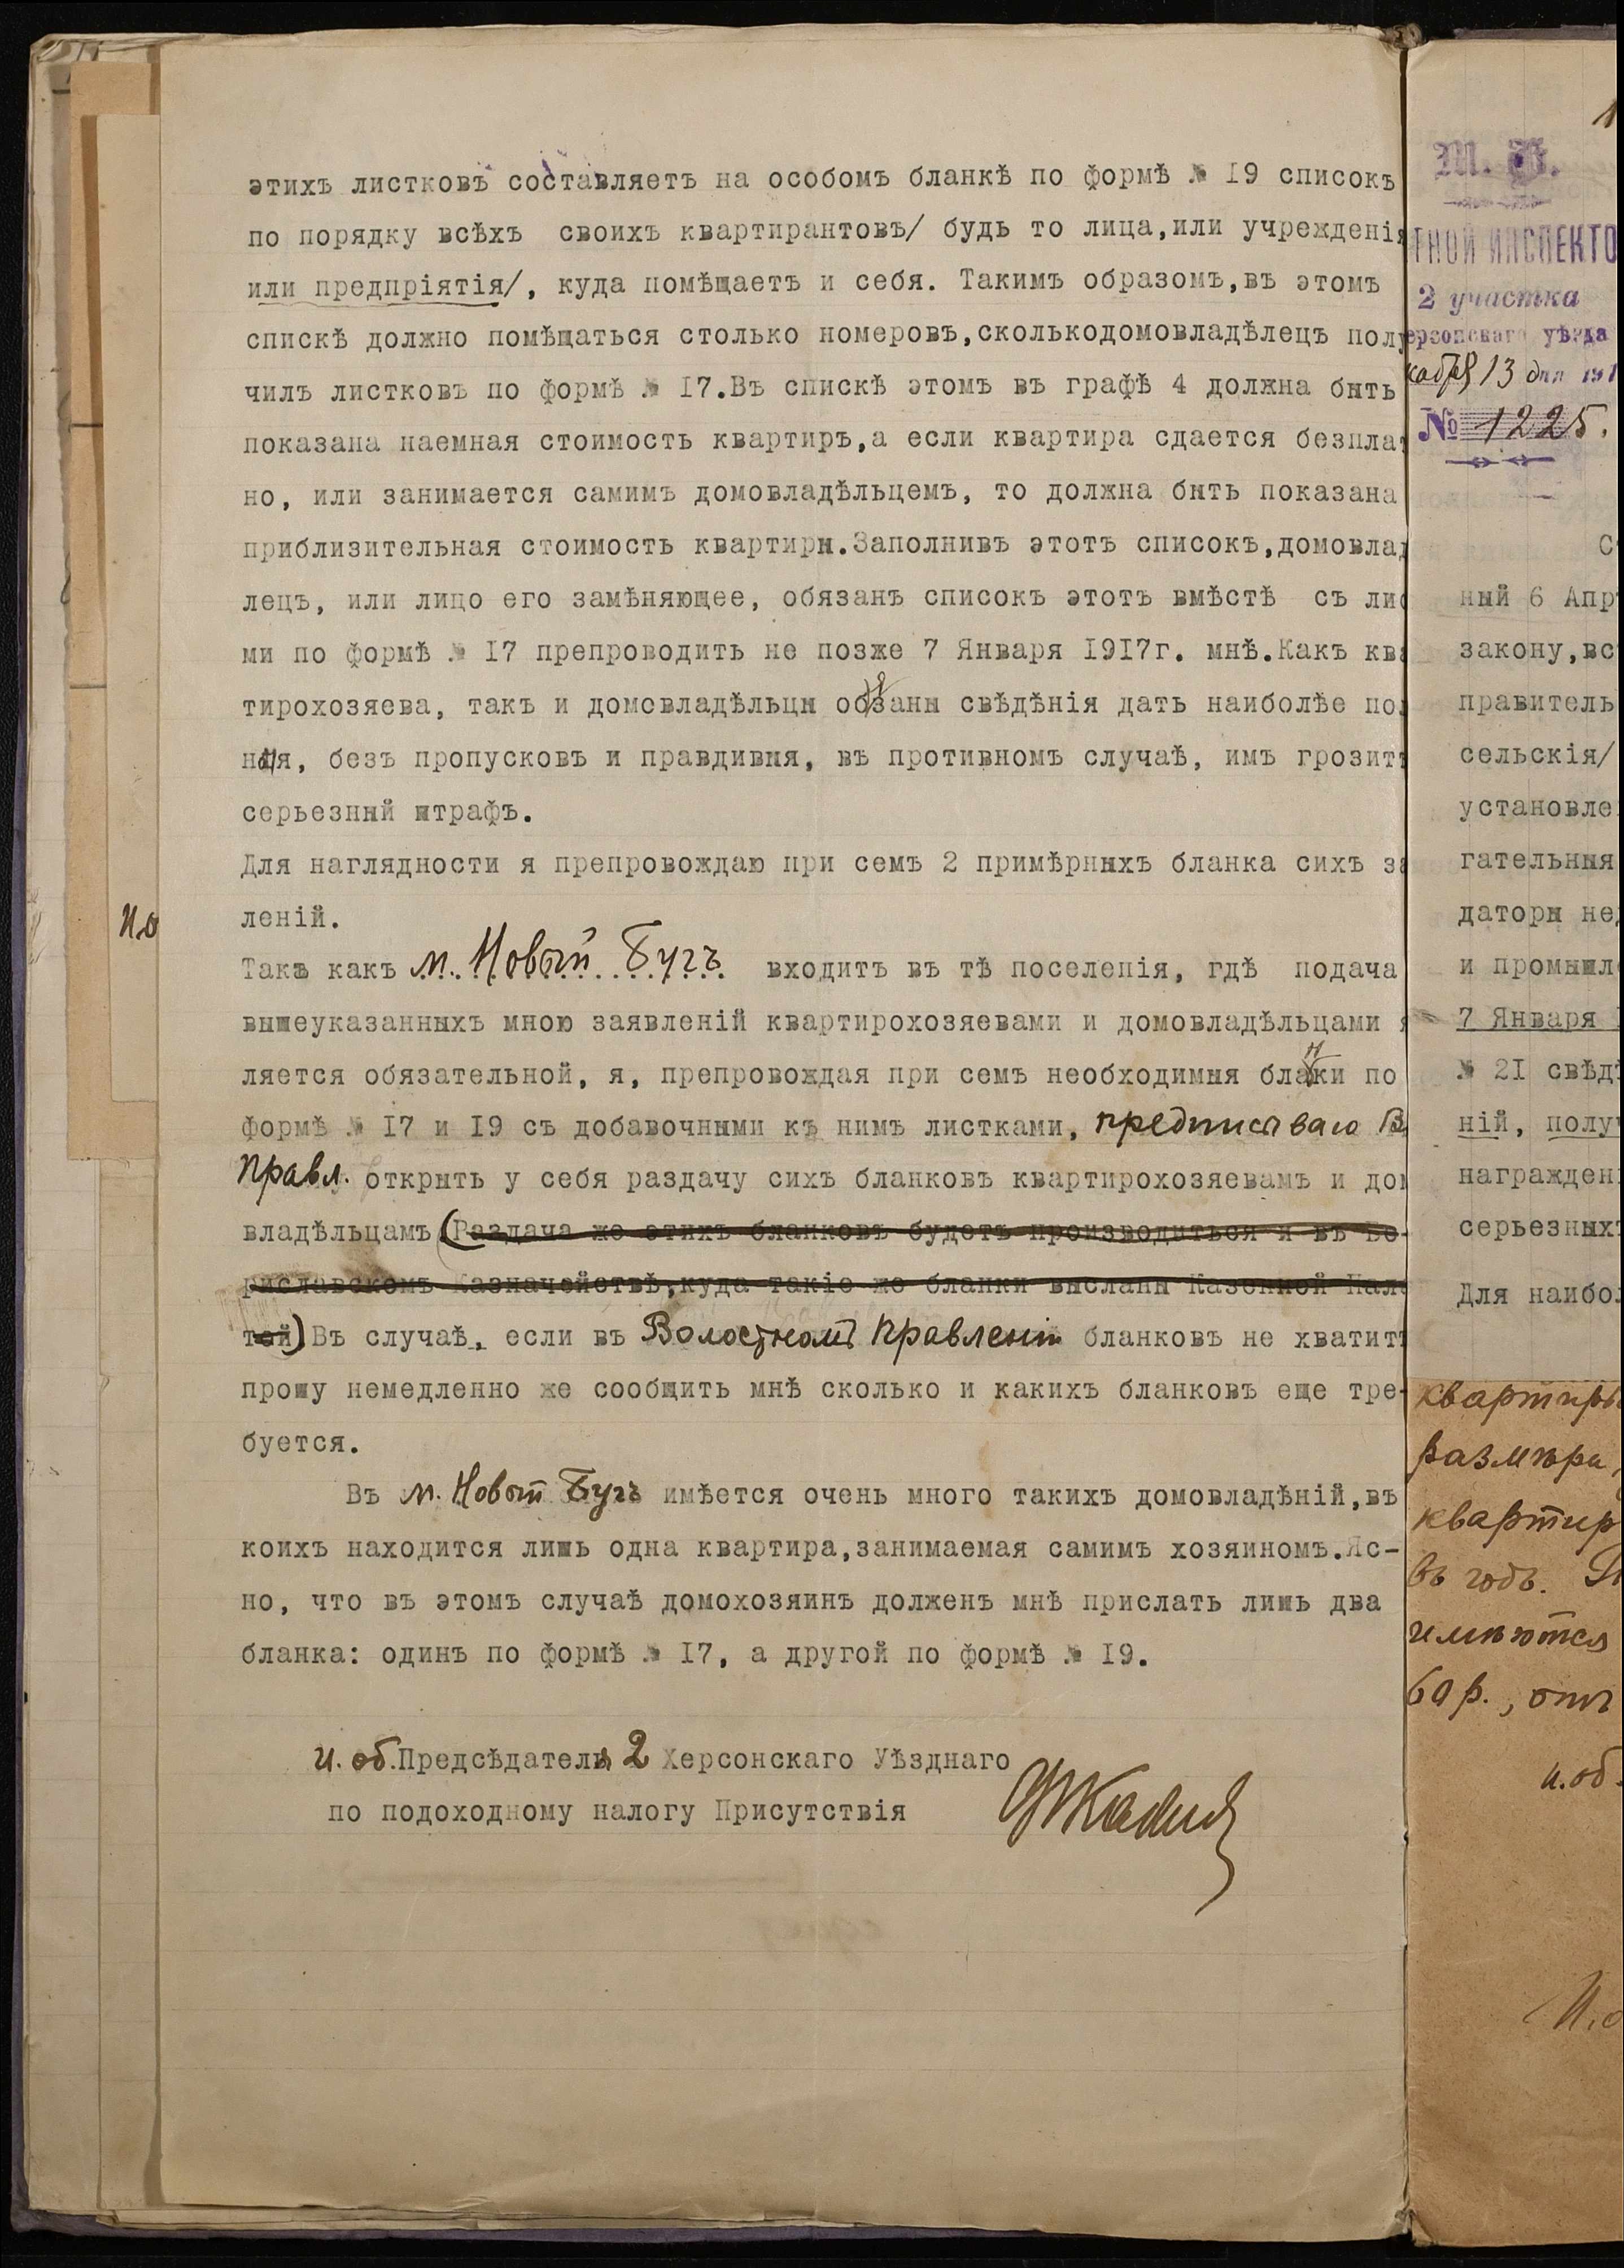 этихъ листковъ составляетъ на особомъ бланкѣ по формѣ № I9 списокъ
по порядку всѣхъ своихъ квартирантовъ/ будь то лица,или учрежденія
или предпріятія/, куда помѣщаетъ и себя. Такимъ образомъ,въ этомъ
спискѣ должно помѣщаться столько номеровъ,сколькодомовладѣлецъ полу
чилъ листковъ по формѣ № I7.Въ спискѣ этомъ въ графѣ 4 должна быть
показана наемная стоимость квартиръ,а если квартира сдается безплат
но, или занимается самимъ домовладѣльцемъ, то должна быть показана
приблизительная стоимость квартиры.Заполнивъ этотъ списокъ,домовлад
лецъ, или лицо его замѣняющее, обязанъ списокъ этотъ вмѣстѣ съ лис
ми по формѣ № I7 препроводить не позже 7 Января I9I7г. мнѣ.Какъ ква
тирохозяева, такъ и домовладѣльцы обязаны свѣдѣнія дать наиболѣе пол
ныя, безъ пропусковъ и правдивыя, въ противномъ случаѣ, имъ грозитъ
серьезный штрафъ.
Для наглядности я препровождаю при семъ 2 примѣрныхъ бланка сихъ за
леній.
Такъ какъ м. Новый Бугъ входитъ въ тѣ поселенія, гдѣ подача
вышеуказанныхъ мною заявленій квартирохозяевами и домовладѣльцами я
ляется обязательной, я, препровождая при семъ необходимыя бланки по
формѣ № I7 и I9 съ добавочными къ нимъ листками, предписываю В
Правл. открыть у себя раздачу сихъ бланковъ квартирохозяевамъ и дом
владѣльцамъ (Раздача же этихъ бланковъ будетъ производиться и въ Бе-
риславскомъ Казначействѣ,куда такіе же бланки высланы Казенной Пала
той) Въ случаѣ, если въ Волостномъ Правленіи бланковъ не хватитъ
прошу немедленно же сообщить мнѣ сколько и какихъ бланковъ еще тре-
буется.
Въ м. Новый Бугъ имѣется очень много такихъ домовладѣній,въ
коихъ находится лишь одна квартира,занимаемая самимъ хозяиномъ.Яс-
но, что въ этомъ случаѣ домохозяинъ долженъ мнѣ прислать лишь два
бланка: одинъ по формѣ № I7, а другой по формѣ № I9.
И. об. Предсѣдателя 2 Херсонскаго Уѣзднаго
по подоходному налогу Присутствія
И.о
М. Ф.
ТНОЙ ИНСПЕКТО
2 участка
ерсонскаго уѣзда
кабря 13 дня 191
№ 1225.
С
ный 6 Апр
закону,вс
правитель
сельскія/
установле
гательныя
даторы не
и промышл
7 Января
№ 2I свѣд
ній, полу
награжден
серьезныхъ
Для наибол
квартиры
размѣра,
квартир
въ годъ.
имѣются
60 р., отъ
и.об.
И.о